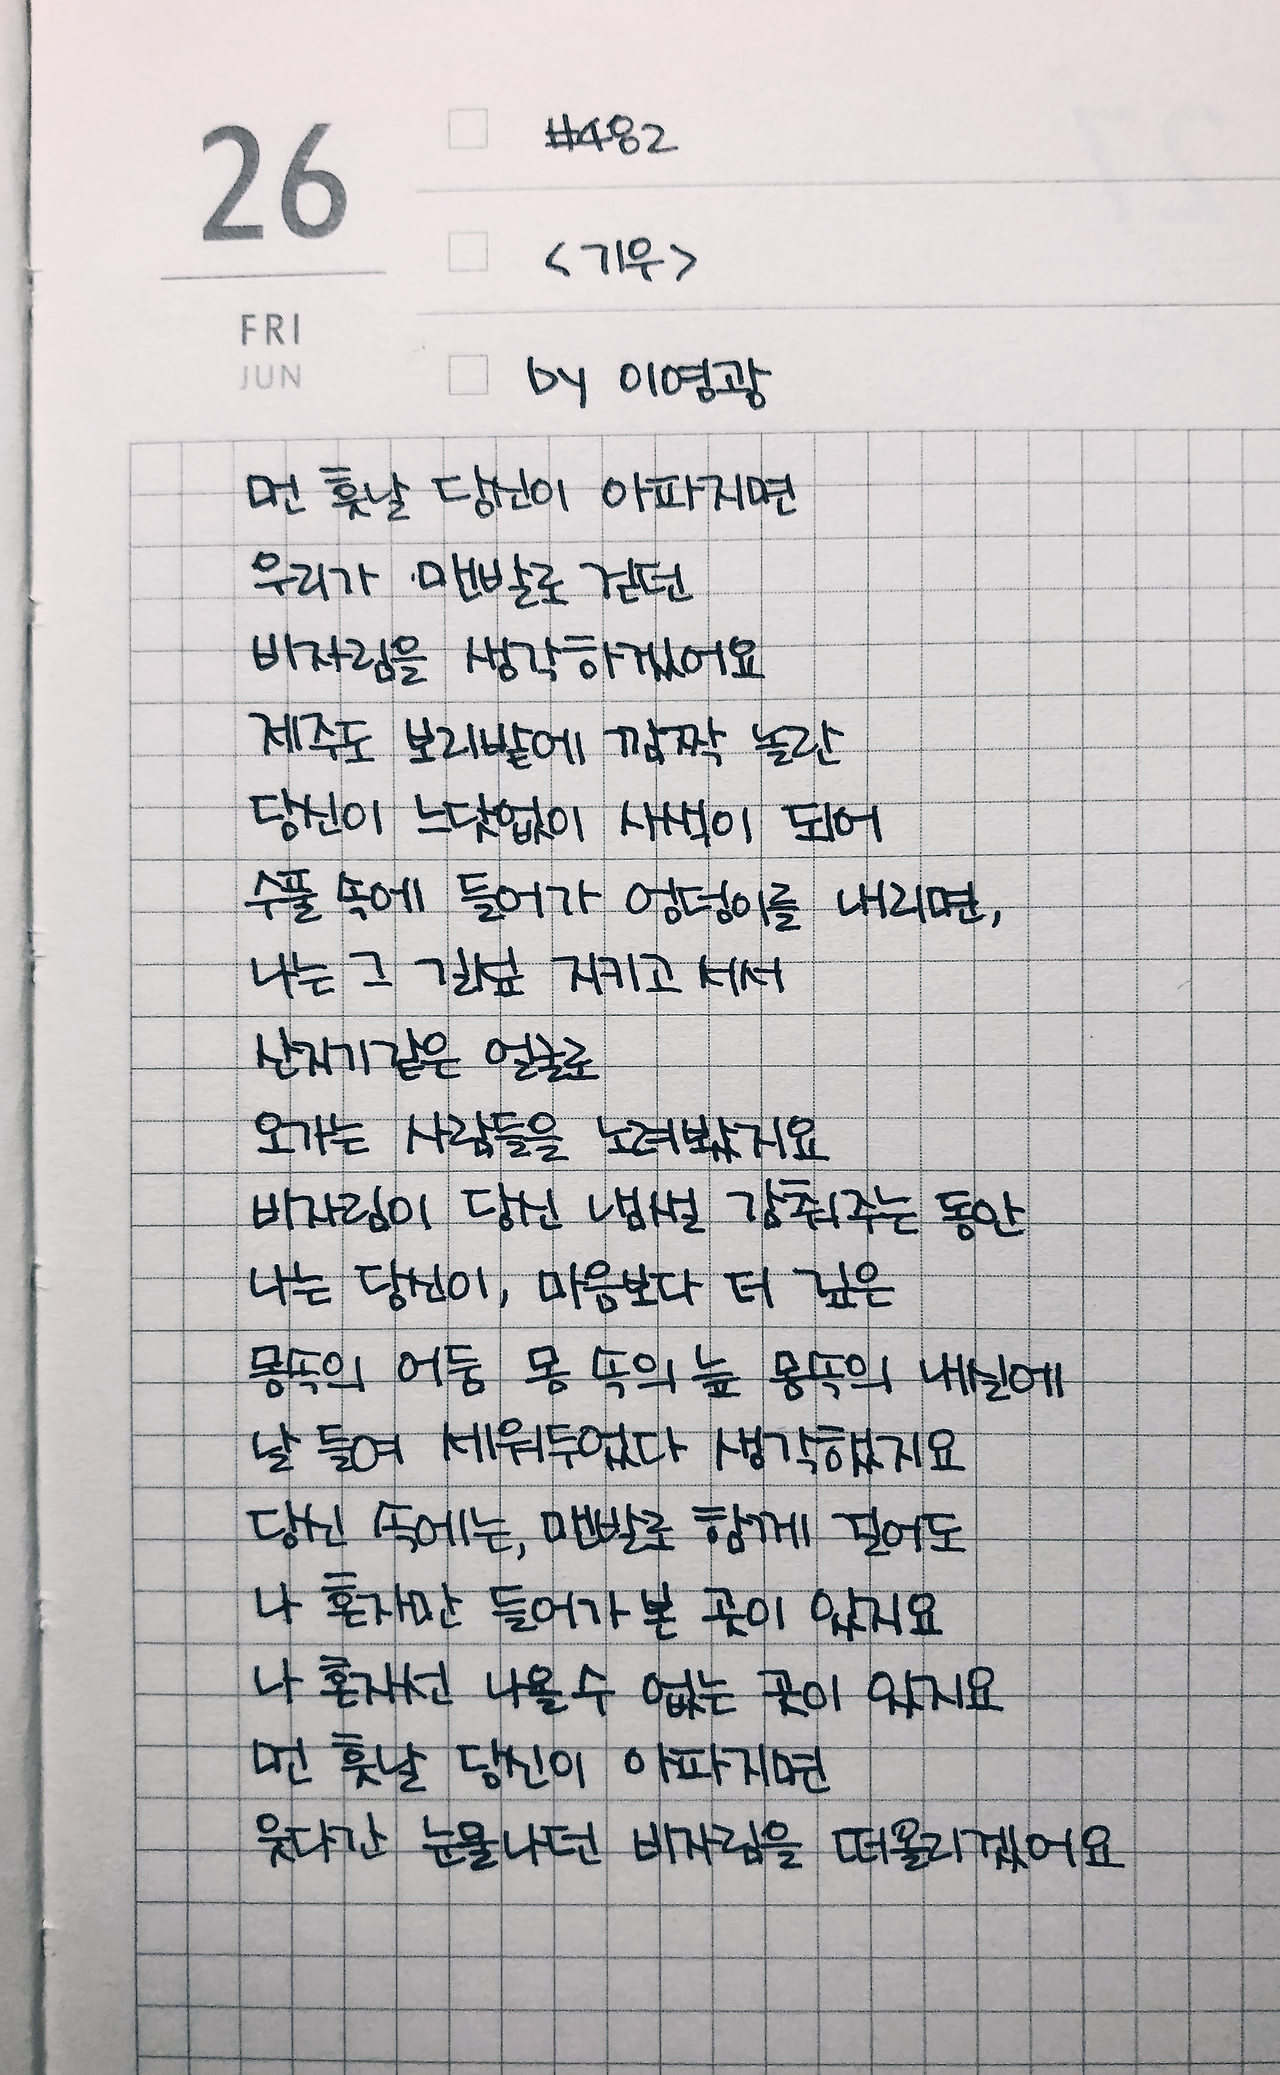 26
FRI
JUN
#482
<기우>
by 이영광
먼 훗날 당신이 아파지면
우리가 맨발로 걷던
비자림을 생각하겠어요
제주도 보리밭에 깜짝 놀란
당신이 느닷없이 사색이 되어
수풀 속에 들어가 엉덩이를 내리면,
나는 그 길섶 지키고 서서
산지기같은 얼굴로
오가는 사람들을 노려봤지요
비자림이 당신 냄샐 감춰주는 동안
나는 당신이, 마음보다 더 깊은
몸속의 어둠 몸 속의 늪 몸속의 내실에
날 들여 세워두었다 생각했지요
당신 속에는, 맨발로 함께 걸어도
나 혼자만 들어가 본 곳이 있지요
나 혼자선 나올 수 없는 곳이 있지요
먼 훗날 당신이 아파지면
웃다간 눈물나던 비자림을 떠올리겠어요